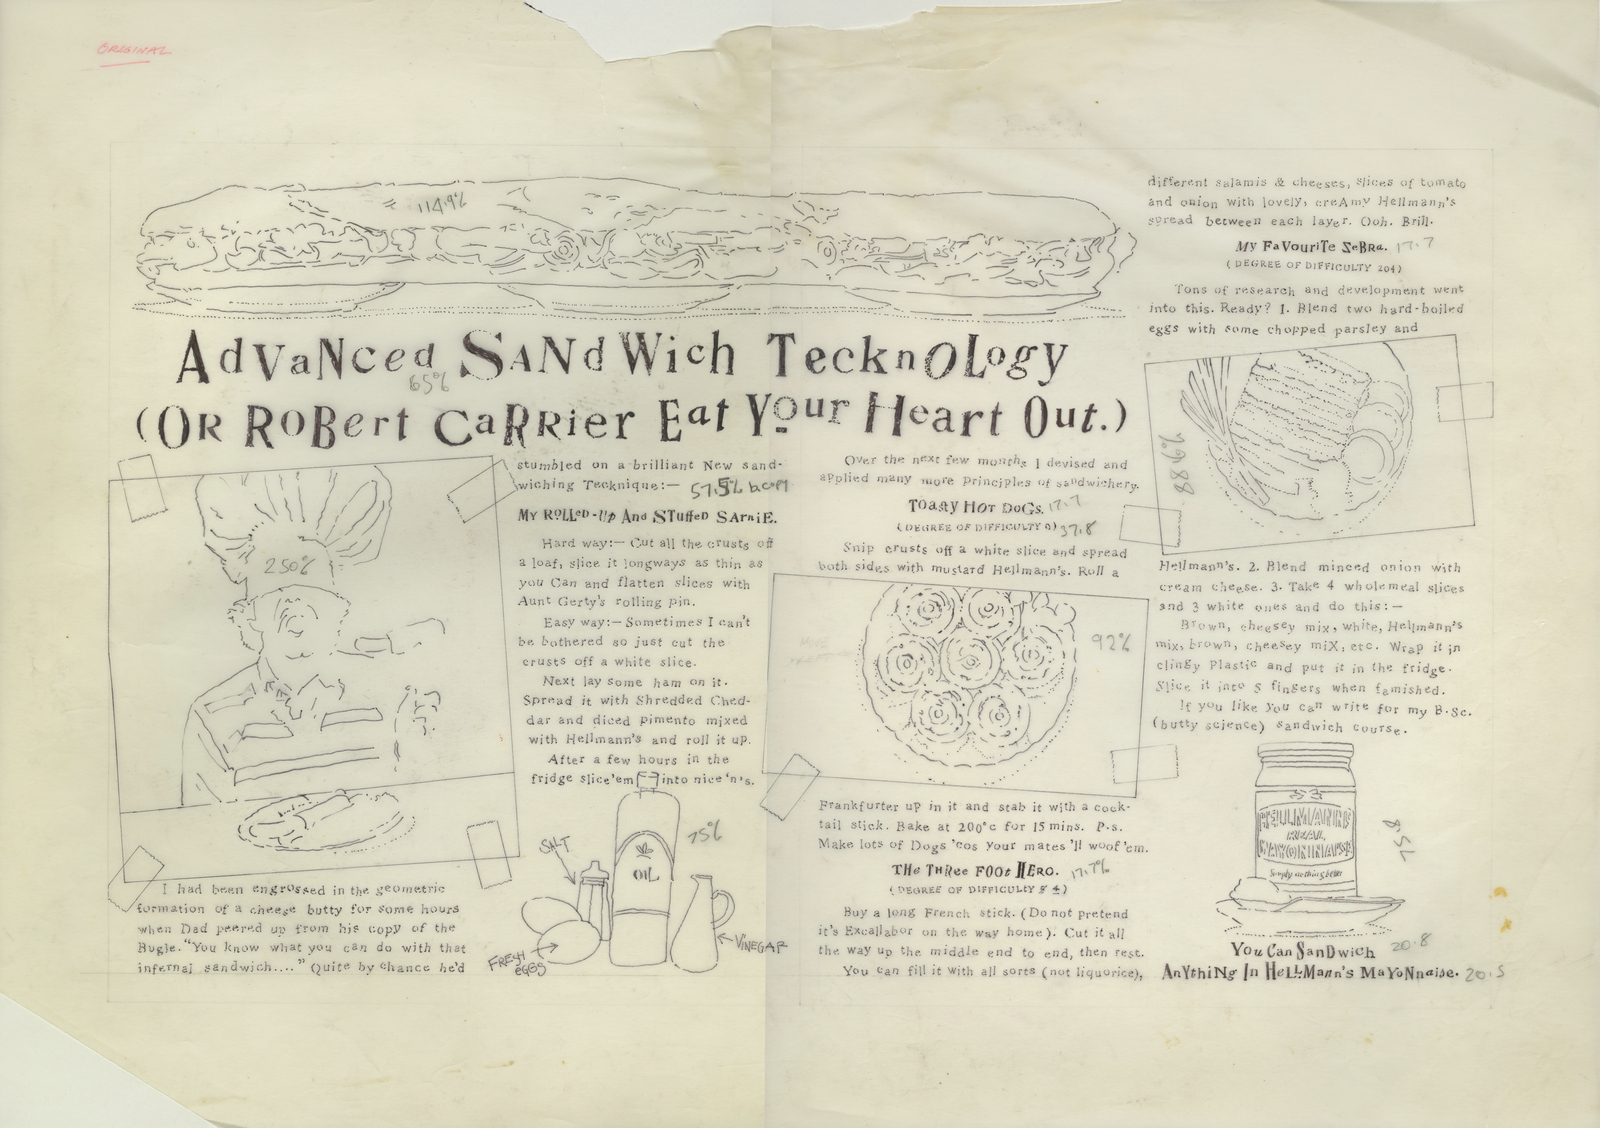 ORIGINAL
114.9%
AdVaNced SaNdWich TecknOLogy
65%
(Or RoBert CaRRier Eat Your Heart Out.)
250%
I had been engrossed in the geometric
formation of a cheese butty for some hours
when Dad peered up from his copy of the
Bugle. "You know what you can do with that
infernal sandwich...." Quite by chance he'd
stumbled on a brilliant New sand-
wiching Tecknique:—
57.5% b.copy
My RoLLed-Up And STuffeD SArniE.
Hard way:— Cut all the crusts off
a loaf, slice it longways as thin as
you Can and flatten slices with
Aunt Gerty's rolling pin.
Easy way:— Sometimes I can't
be bothered so just cut the
crusts off a white slice.
Next lay some ham on it.
Spread it with Shredded Ched-
dar and diced pimento mixed
with Hellmann's and roll it up.
After a few hours in the
fridge slice 'em into nice 'n's.
SALT
75%
OIL
VINEGAR
FRESH
EGGS
Over the next few months I devised and
applied many more Principles of sandwichery.
Toasty HoT DoGs. 17.7
(DEGREE OF DIFFICULTY 9) 37.8
Snip crusts off a white slice and spread
both sides with mustard Hellmann's. Roll a
92%
Frankfurter up in it and stab it with a cock-
tail stick. Bake at 200°c for 15 mins. P.s.
Make lots of Dogs 'cos your mates 'll woof 'em.
THe THRee FOOt HERo. 17.7%
(DEGREE OF DIFFICULTY 8 ½)
Buy a long French stick. (Do not pretend
it's Excallabor on the way home). Cut it all
the way up the middle end to end, then rest.
You can fill it with all sorts (not liquorice),
different salamis & cheeses, slices of tomato
and onion with lovely, creAmy Hellmann's
spread between each layer. Ooh. Brill.
My FaVouriTe ZeBRa. 17.7
(DEGREE OF DIFFICULTY 204)
Tons of research and development went
into this. Ready? 1. Blend two hard-boiled
eggs with some chopped parsley and
88.6%
Hellmann's. 2. Blend minced onion with
cream cheese. 3. Take 4 wholemeal slices
and 3 white ones and do this:—
Brown, cheesey mix, white, Hellmann's
mix, brown, cheesey miX, etc. Wrap it in
clingy Plastic and put it in the fridge.
Slice it into 5 fingers when famished.
If you like You can write for my B.Sc.
(butty science) sandwich course.
HELLMANN'S
REAL
MAYONNAISE
Simply nothing better
75.8
You Can SanDwich
20.8
AnYthiNg In HeLLMann's MaYoNnaise. 20.5